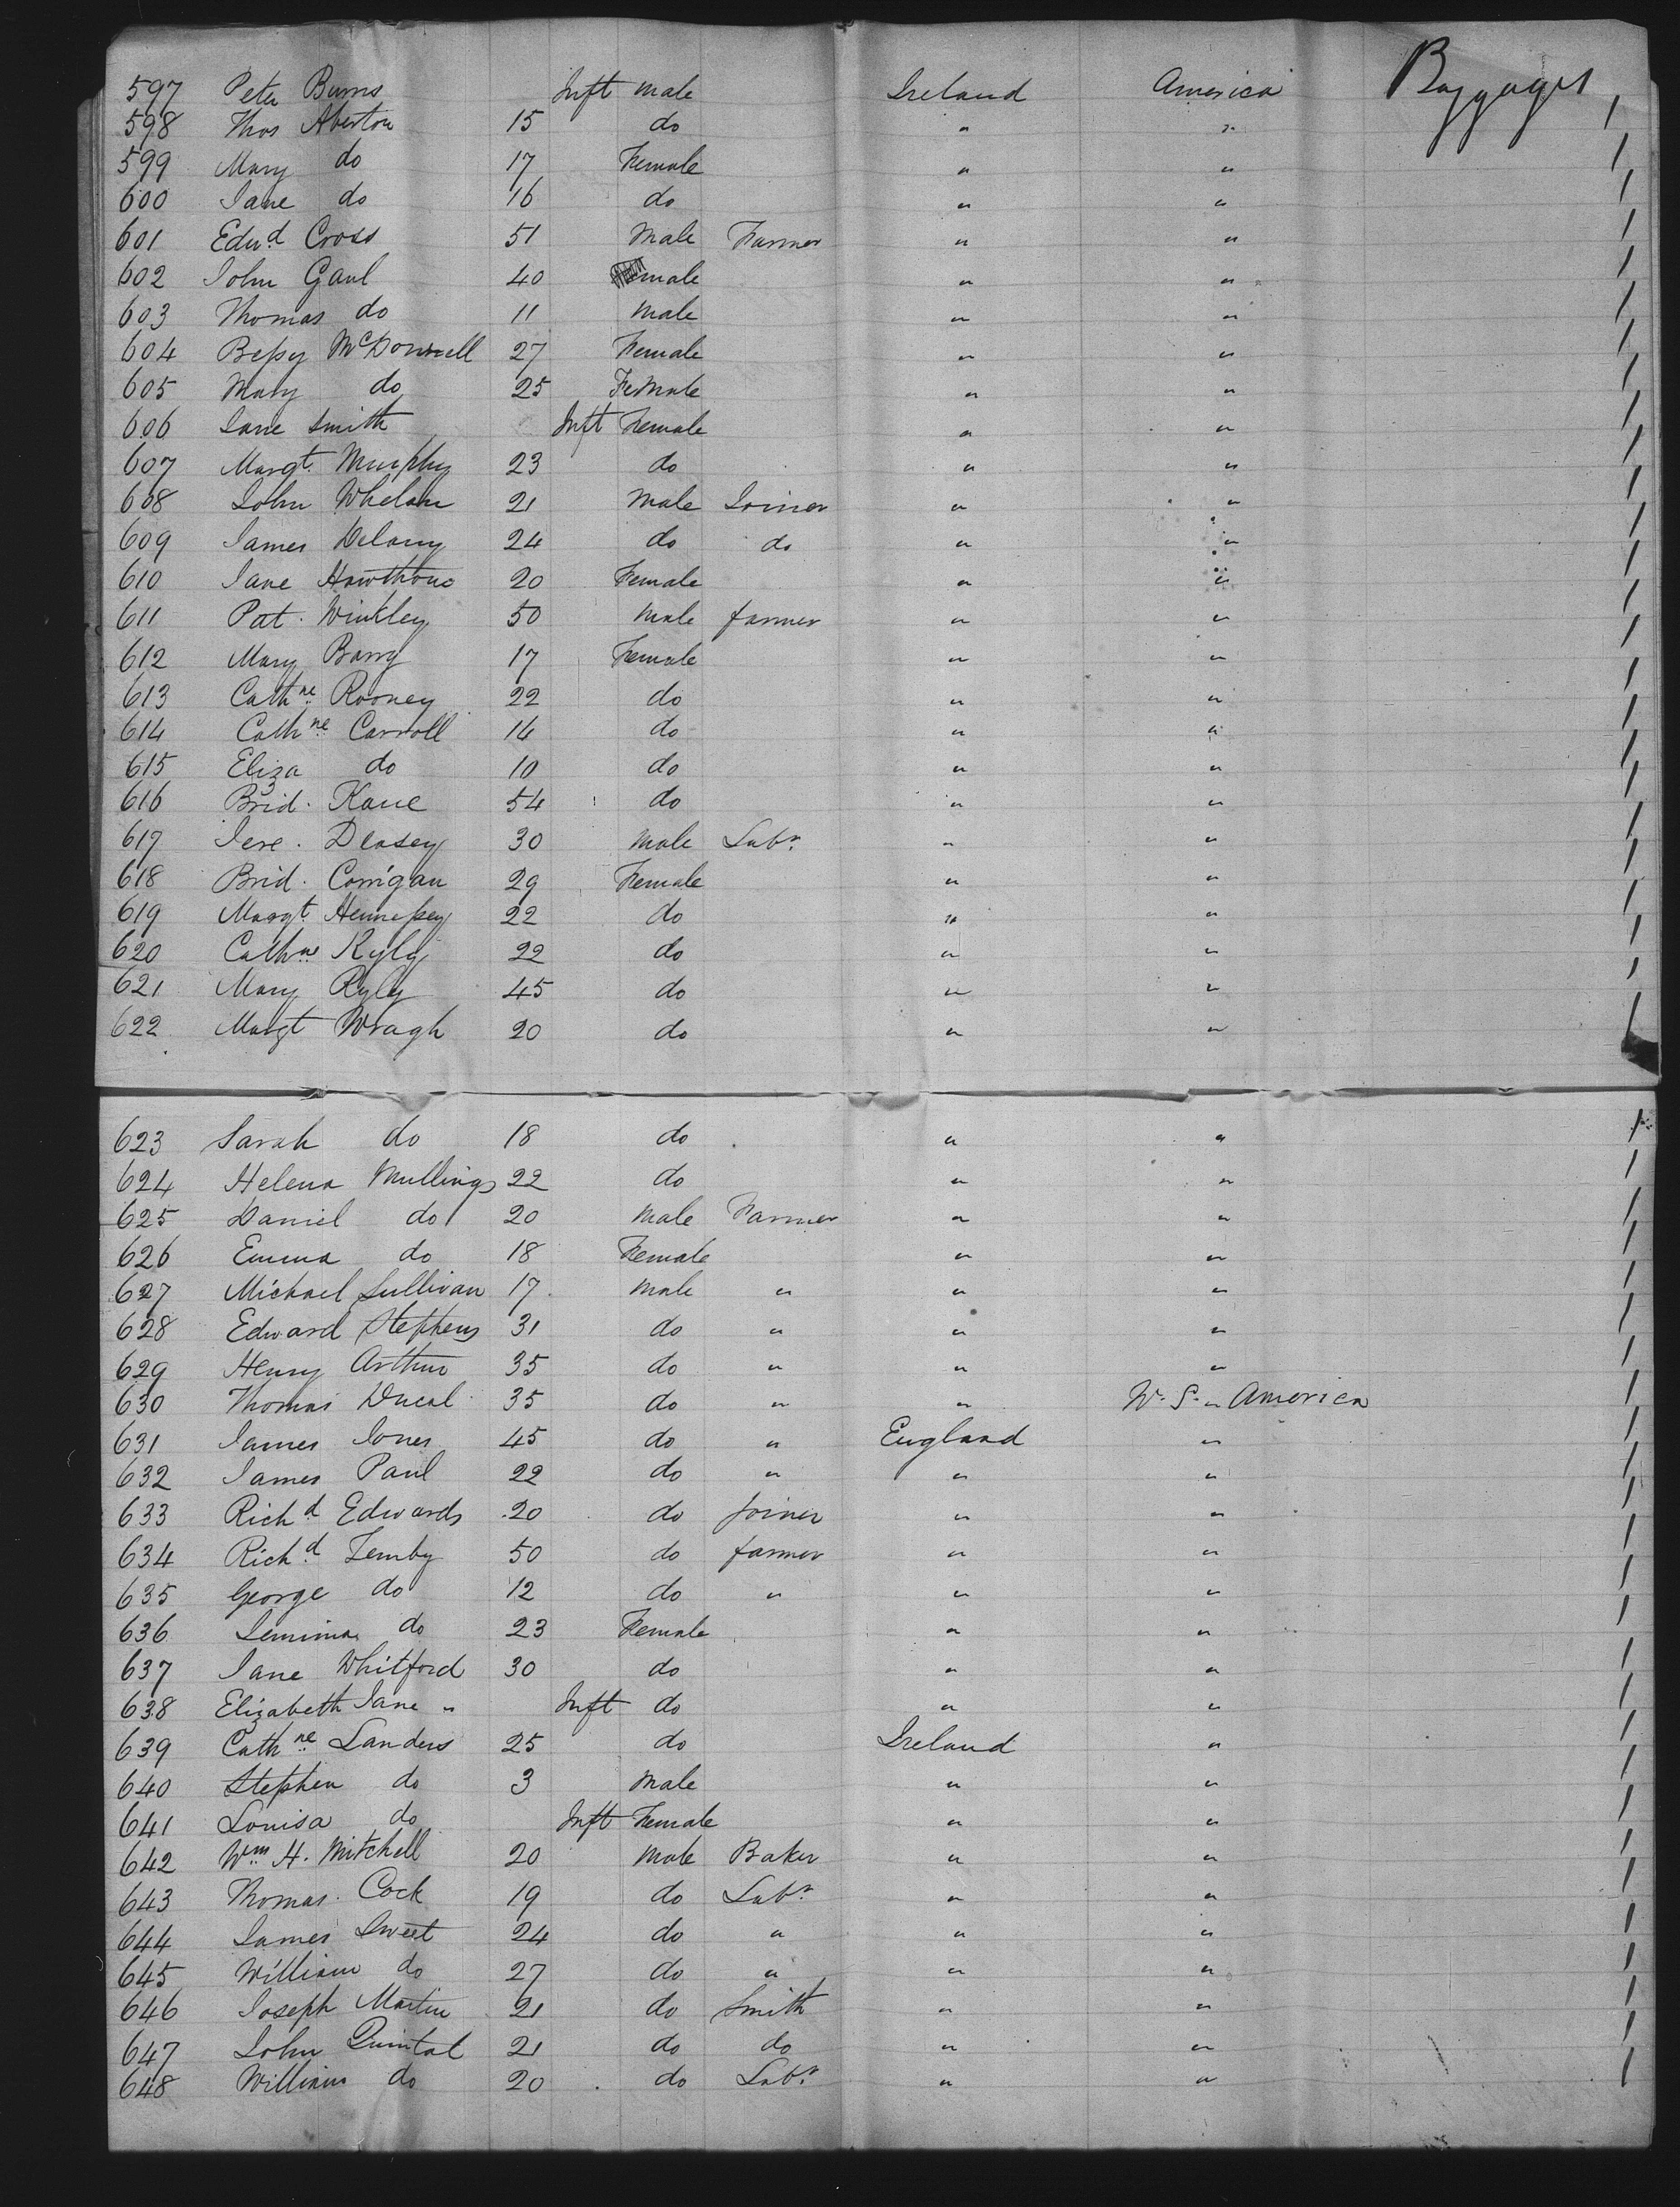 597 Peter Burns Inft male Ireland America Baggages 1
598 Thos Aberton 15 do " " 1
599 Mary do 17 Female " " 1
600 Jane do 16 do " " 1
601 Edwd Cross 51 Male Farmer " " 1
602 John Gaul 40 male " " 1
603 Thomas do 11 Male " " 1
604 Bessy McDonnell 27 Female " " 1
605 Mary do 25 FeMale " " 1
606 Jane Smith Inft Female " " 1
607 Margt. Murphy 23 do " " 1
608 John Whelan 21 Male Joiner " " 1
609 James Delany 24 do do " " 1
610 Jane Hawthone 20 Female " " 1
611 Pat. Winkley 50 Male farmer " " 1
612 Mary Barry 17 Female " " 1
613 Cathne Rooney 22 do " " 1
614 Cathne Carroll 14 do " " 1
615 Eliza do 10 do " " 1
616 Brid. Kane 54 do " " 1
617 Jere. Deasey 30 Male Labr. " " 1
618 Brid. Corrigan 29 Female " " 1
619 Margt. Hennessey 22 do " " 1
620 Cathne Ryly 22 do " " 1
621 Mary Ryly 45 do " " 1
622 Margt Wragh 20 do " " 1
623 Sarah do 18 do " " 1
624 Helena Mullings 22 do " " 1
625 Daniel do 20 Male Farmer " " 1
626 Emma do 18 Female " " 1
627 Michael Sullivan 17 Male " " " 1
628 Edward Stephens 31 do " " " 1
629 Henry Arthur 35 do " " " 1
630 Thomas Ducal 35 do " " America 1
631 James Jones 45 do " England " 1
632 James Paul 22 do " " " 1
633 Richd Edwards 20 do Joiner " " 1
634 Richd Temby 50 do farmer " " 1
635 George do 12 do " " " 1
636 Jemima do 23 Female " " 1
637 Jane Whitford 30 do " " 1
638 Elizabeth Jane " Inft do " " 1
639 Cathne Landers 25 do Ireland " 1
640 Stephen do 3 Male " " 1
641 Louisa do Inft Female " " 1
642 Wm H. Mitchell 20 Male Baker " " 1
643 Thomas Cock 19 do Labr. " " 1
644 James Sweet 24 do " " " 1
645 William do 27 do " " " 1
646 Joseph Martin 21 do Smith " " 1
647 John Quintal 21 do do " " 1
648 William do 20 do Labr. " " 1